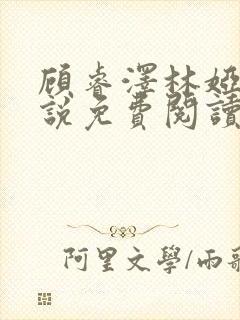 顾睿澤林婭
說免費閱讀
阿里文學/雨歌